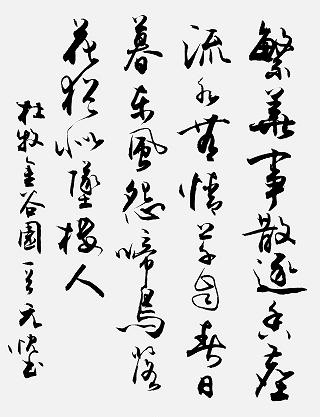 繁華事散逐香塵
流水無情草自春日
暮東風怨啼鳥落
花猶似墜樓人
杜牧金谷園 元書